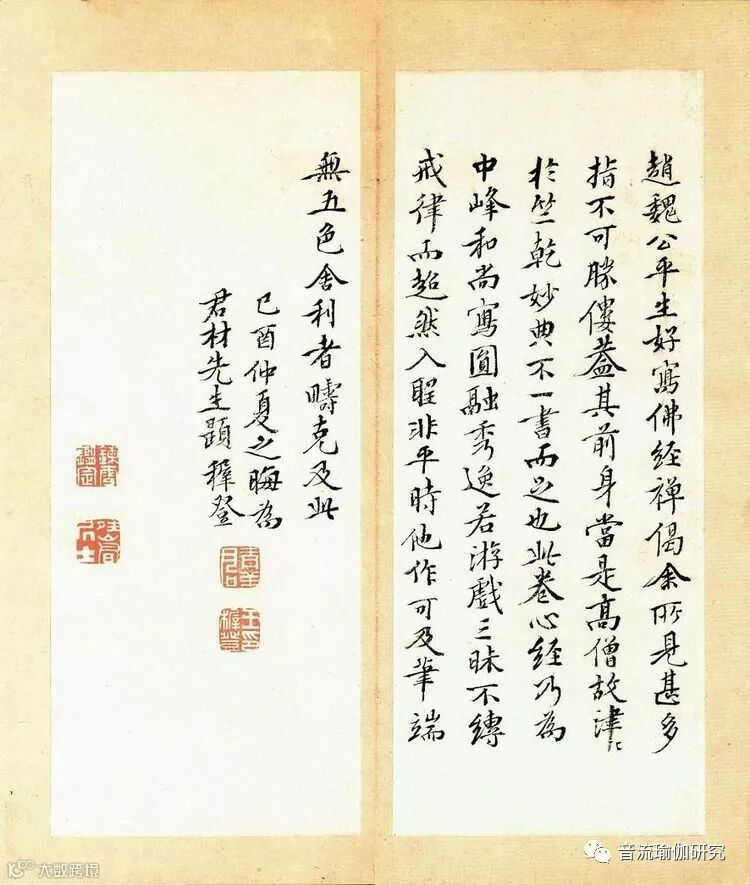 趙魏公平生好寫佛經禪偈余所見甚多
指不可勝僂蓋其前身當是高僧故津〻
於竺乾妙典不一書而足也此卷心經乃為
中峰和尚寫圓融秀逸若游戲三昧不縛
戒律而超然入聖非平時他作可及筆端
無五色舍利者疇克及此
己酉仲夏之晦為
君材先生題穉登
王印穉登
大数跨境
音流瑜伽研究